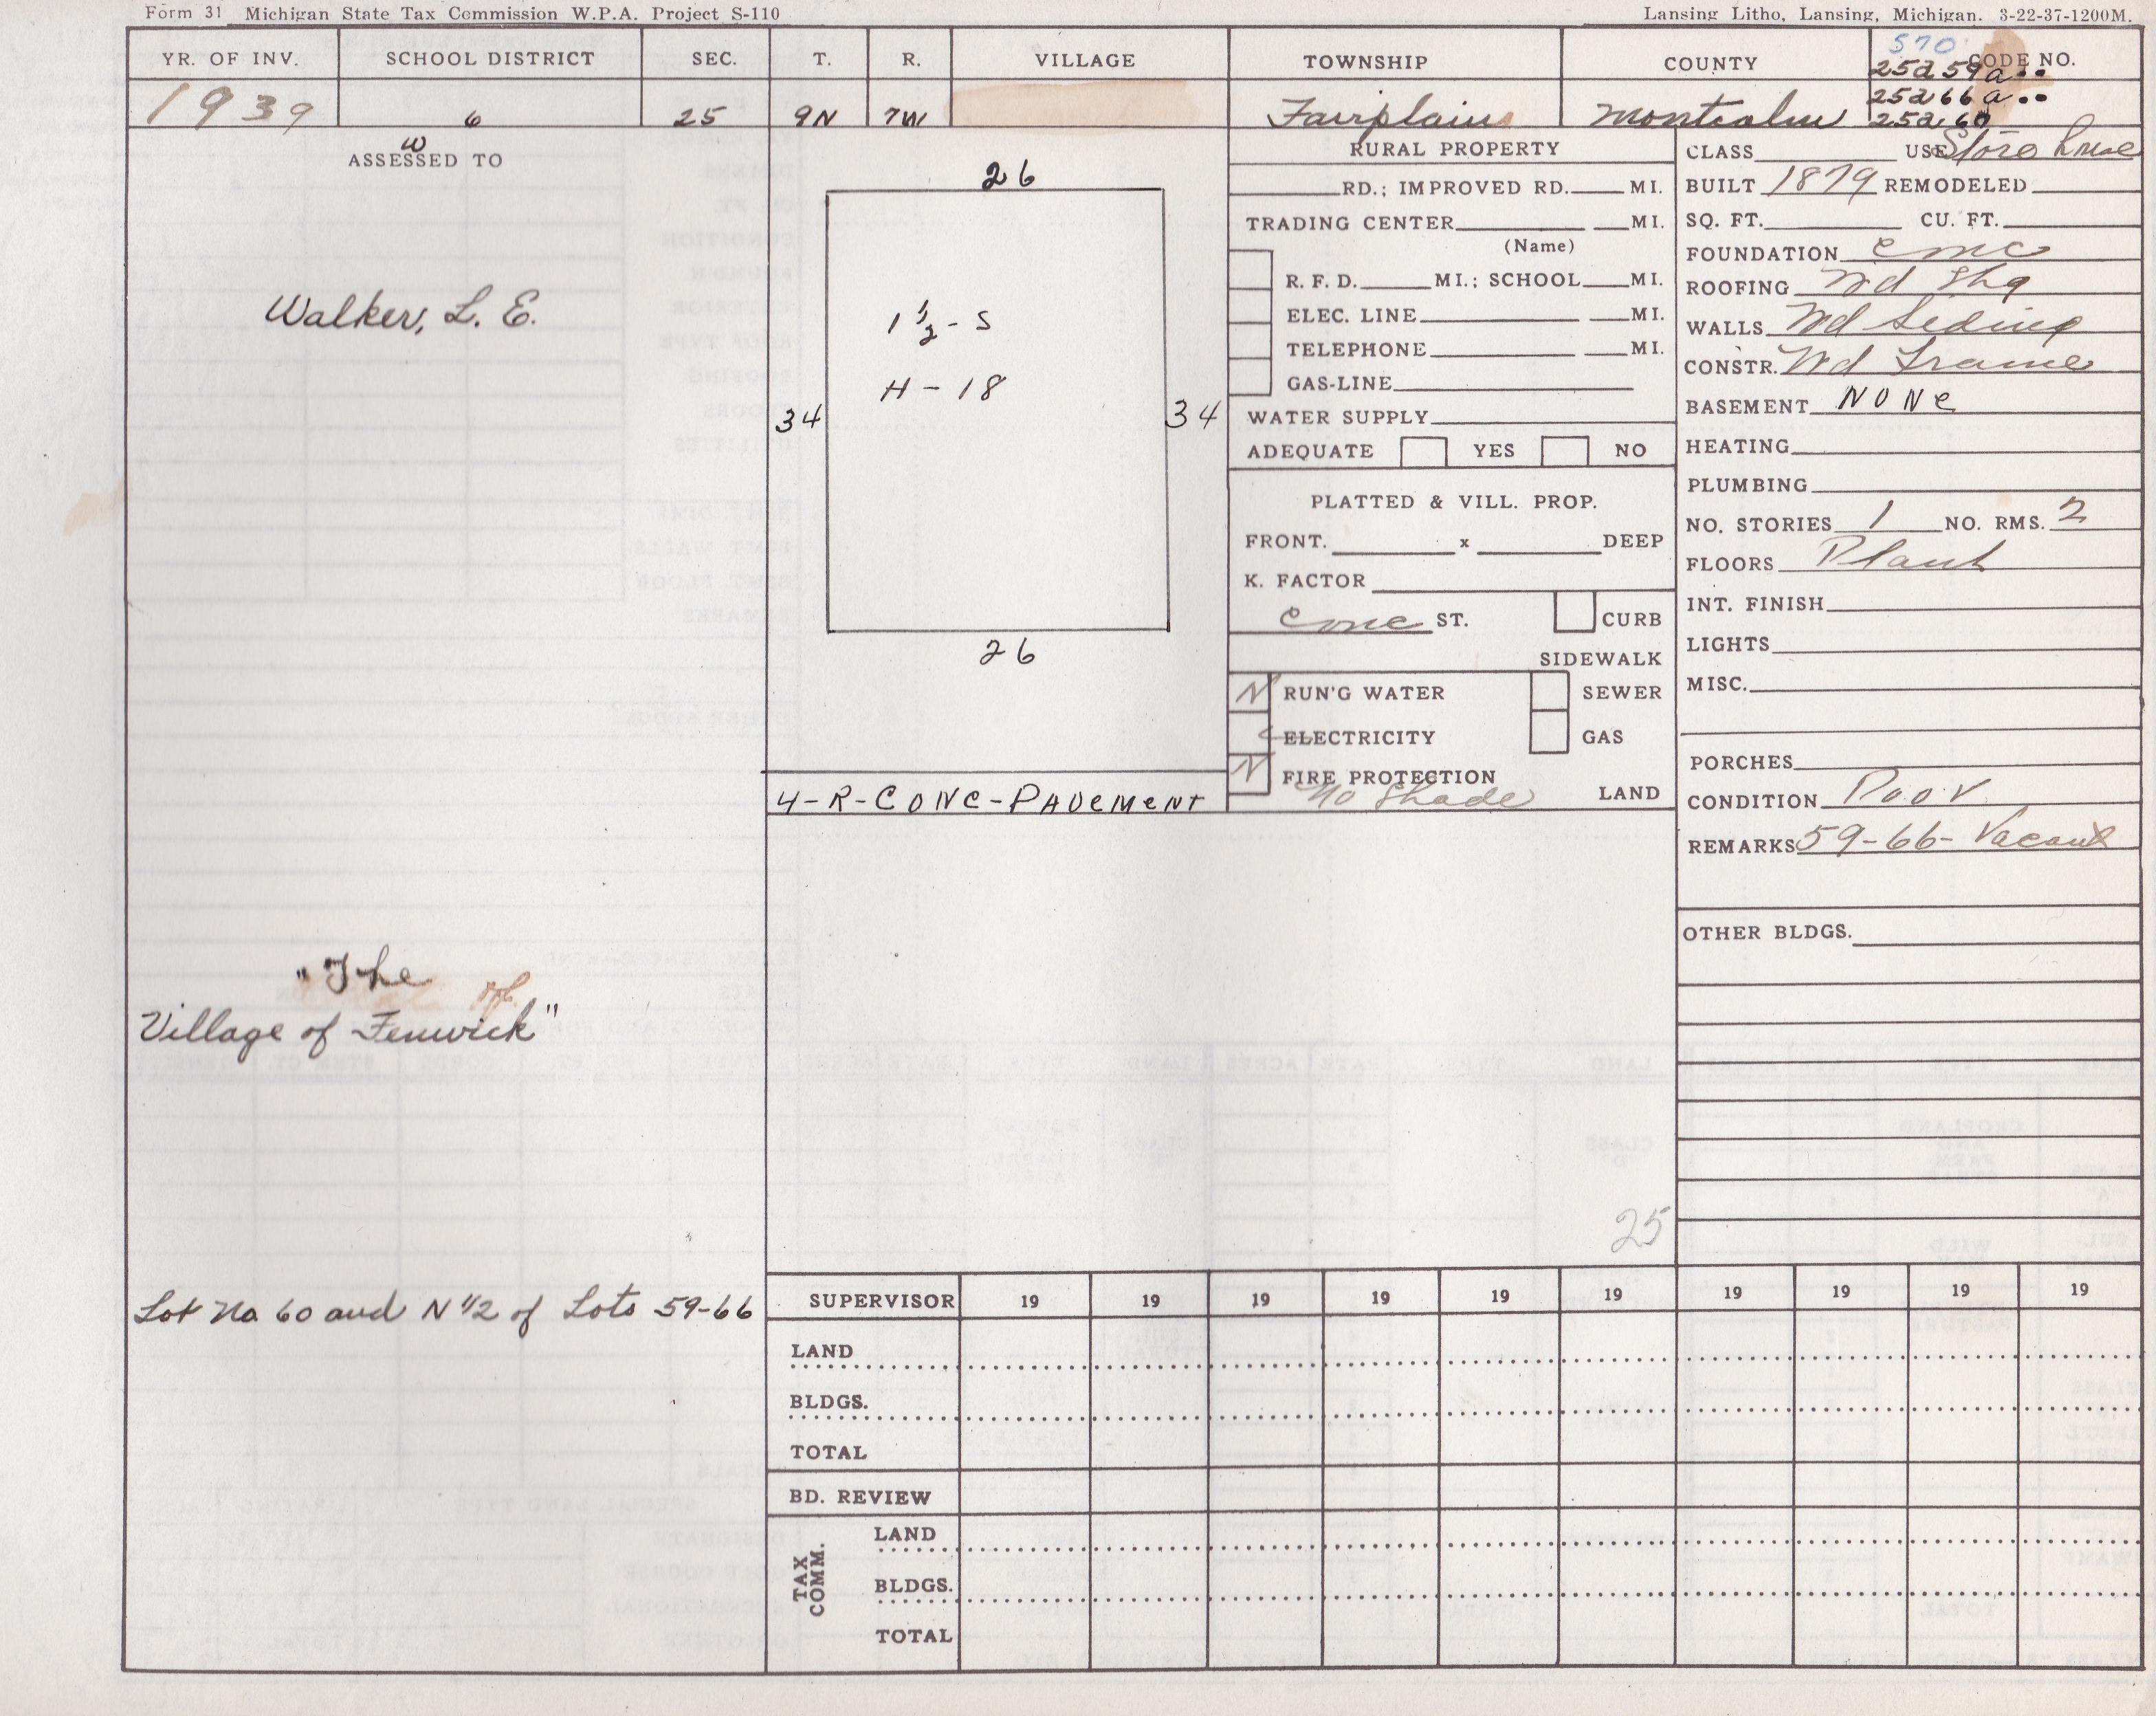 Form 31 Michigan State Tax Commission W.P.A. Project S-110
Lansing Litho, Lansing, Michigan. 3-22-37-1200M.
YR. OF INV. SCHOOL DISTRICT SEC. T. R. VILLAGE TOWNSHIP COUNTY CODE NO.
570
25a 59 a..
25a 66 a..
25a 60
1939 6 25 9N 7W Fairplains Montcalm
W
ASSESSED TO
Walker, L. E.
"The
Village of Fenwick"
Lot No. 60 and N 1/2 of Lots 59-66
26
1 1/2 - S
H - 18
34
34
26
4-R-CONC-PAVEMENT
RURAL PROPERTY
RD.; IMPROVED RD. MI.
TRADING CENTER MI.
(Name)
R. F. D. MI.; SCHOOL MI.
ELEC. LINE MI.
TELEPHONE MI.
GAS-LINE
WATER SUPPLY
ADEQUATE YES NO
PLATTED & VILL. PROP.
FRONT. x DEEP
K. FACTOR
Conc ST. CURB
SIDEWALK
N RUN'G WATER SEWER
ELECTRICITY GAS
N FIRE PROTECTION
No Shade LAND
25
CLASS USE Store house
BUILT 1879 REMODELED
SQ. FT. CU. FT.
FOUNDATION Cmc
ROOFING Wd Shg
WALLS Wd Siding
CONSTR. Wd Frame
BASEMENT NONe
HEATING
PLUMBING
NO. STORIES 1 NO. RMS. 2
FLOORS Plank
INT. FINISH
LIGHTS
MISC.
PORCHES
CONDITION Poor
REMARKS 59-66- Vacant
OTHER BLDGS.
SUPERVISOR 19 19 19 19 19 19 19 19 19 19
LAND
BLDGS.
TOTAL
BD. REVIEW
TAX COMM.
LAND
BLDGS.
TOTAL